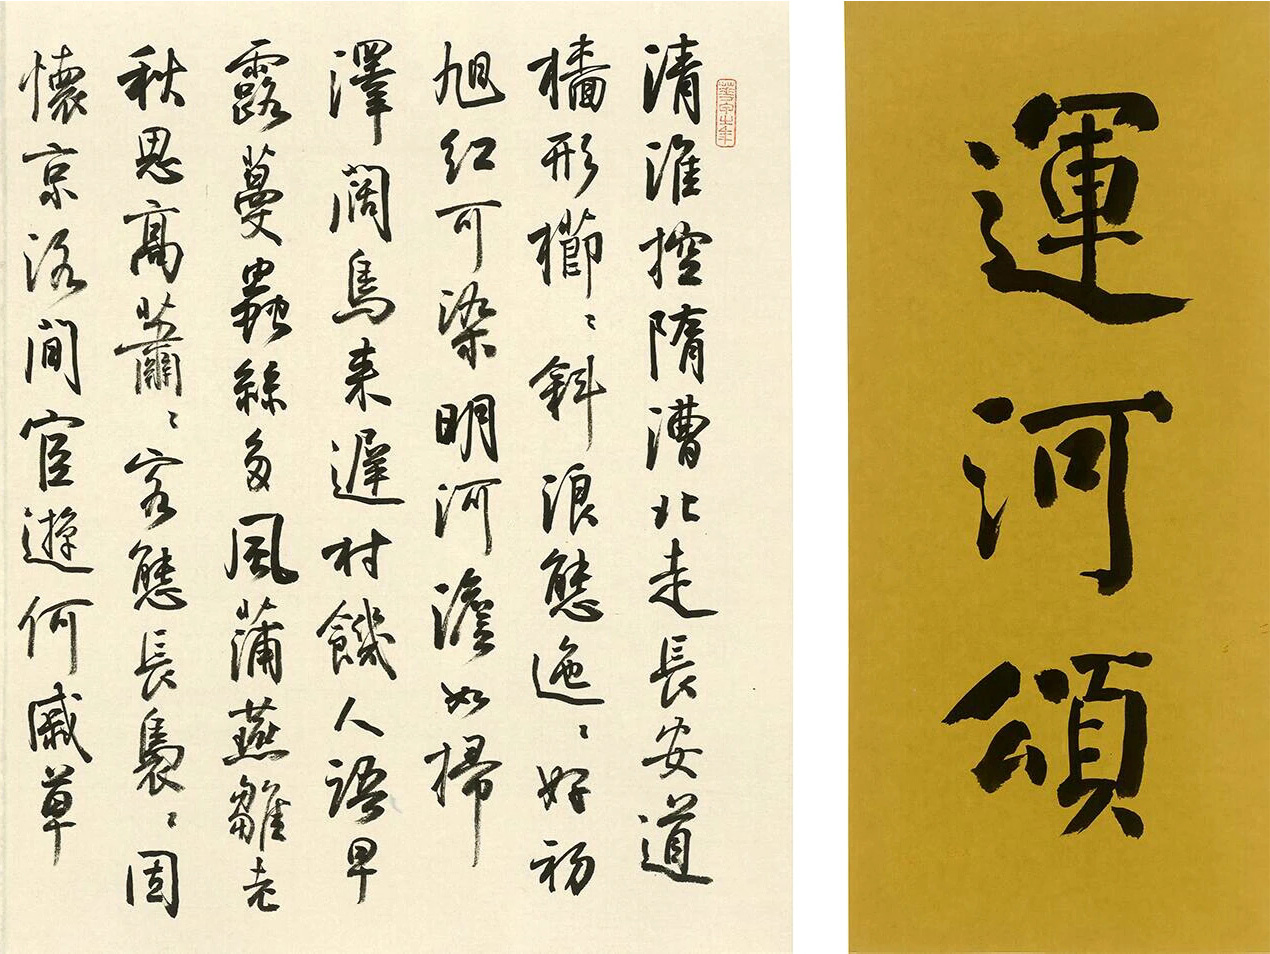 運河頌
清淮控隋漕北走長安道
檣形櫛々斜浪態迤々好初
旭紅可染明河澹如掃
澤闊鳥来遲村饑人語早
露蔓蟲絲多風蒲燕雛老
秋思高蕭々客態長裊々因
懷京洛間宦遊何戚草